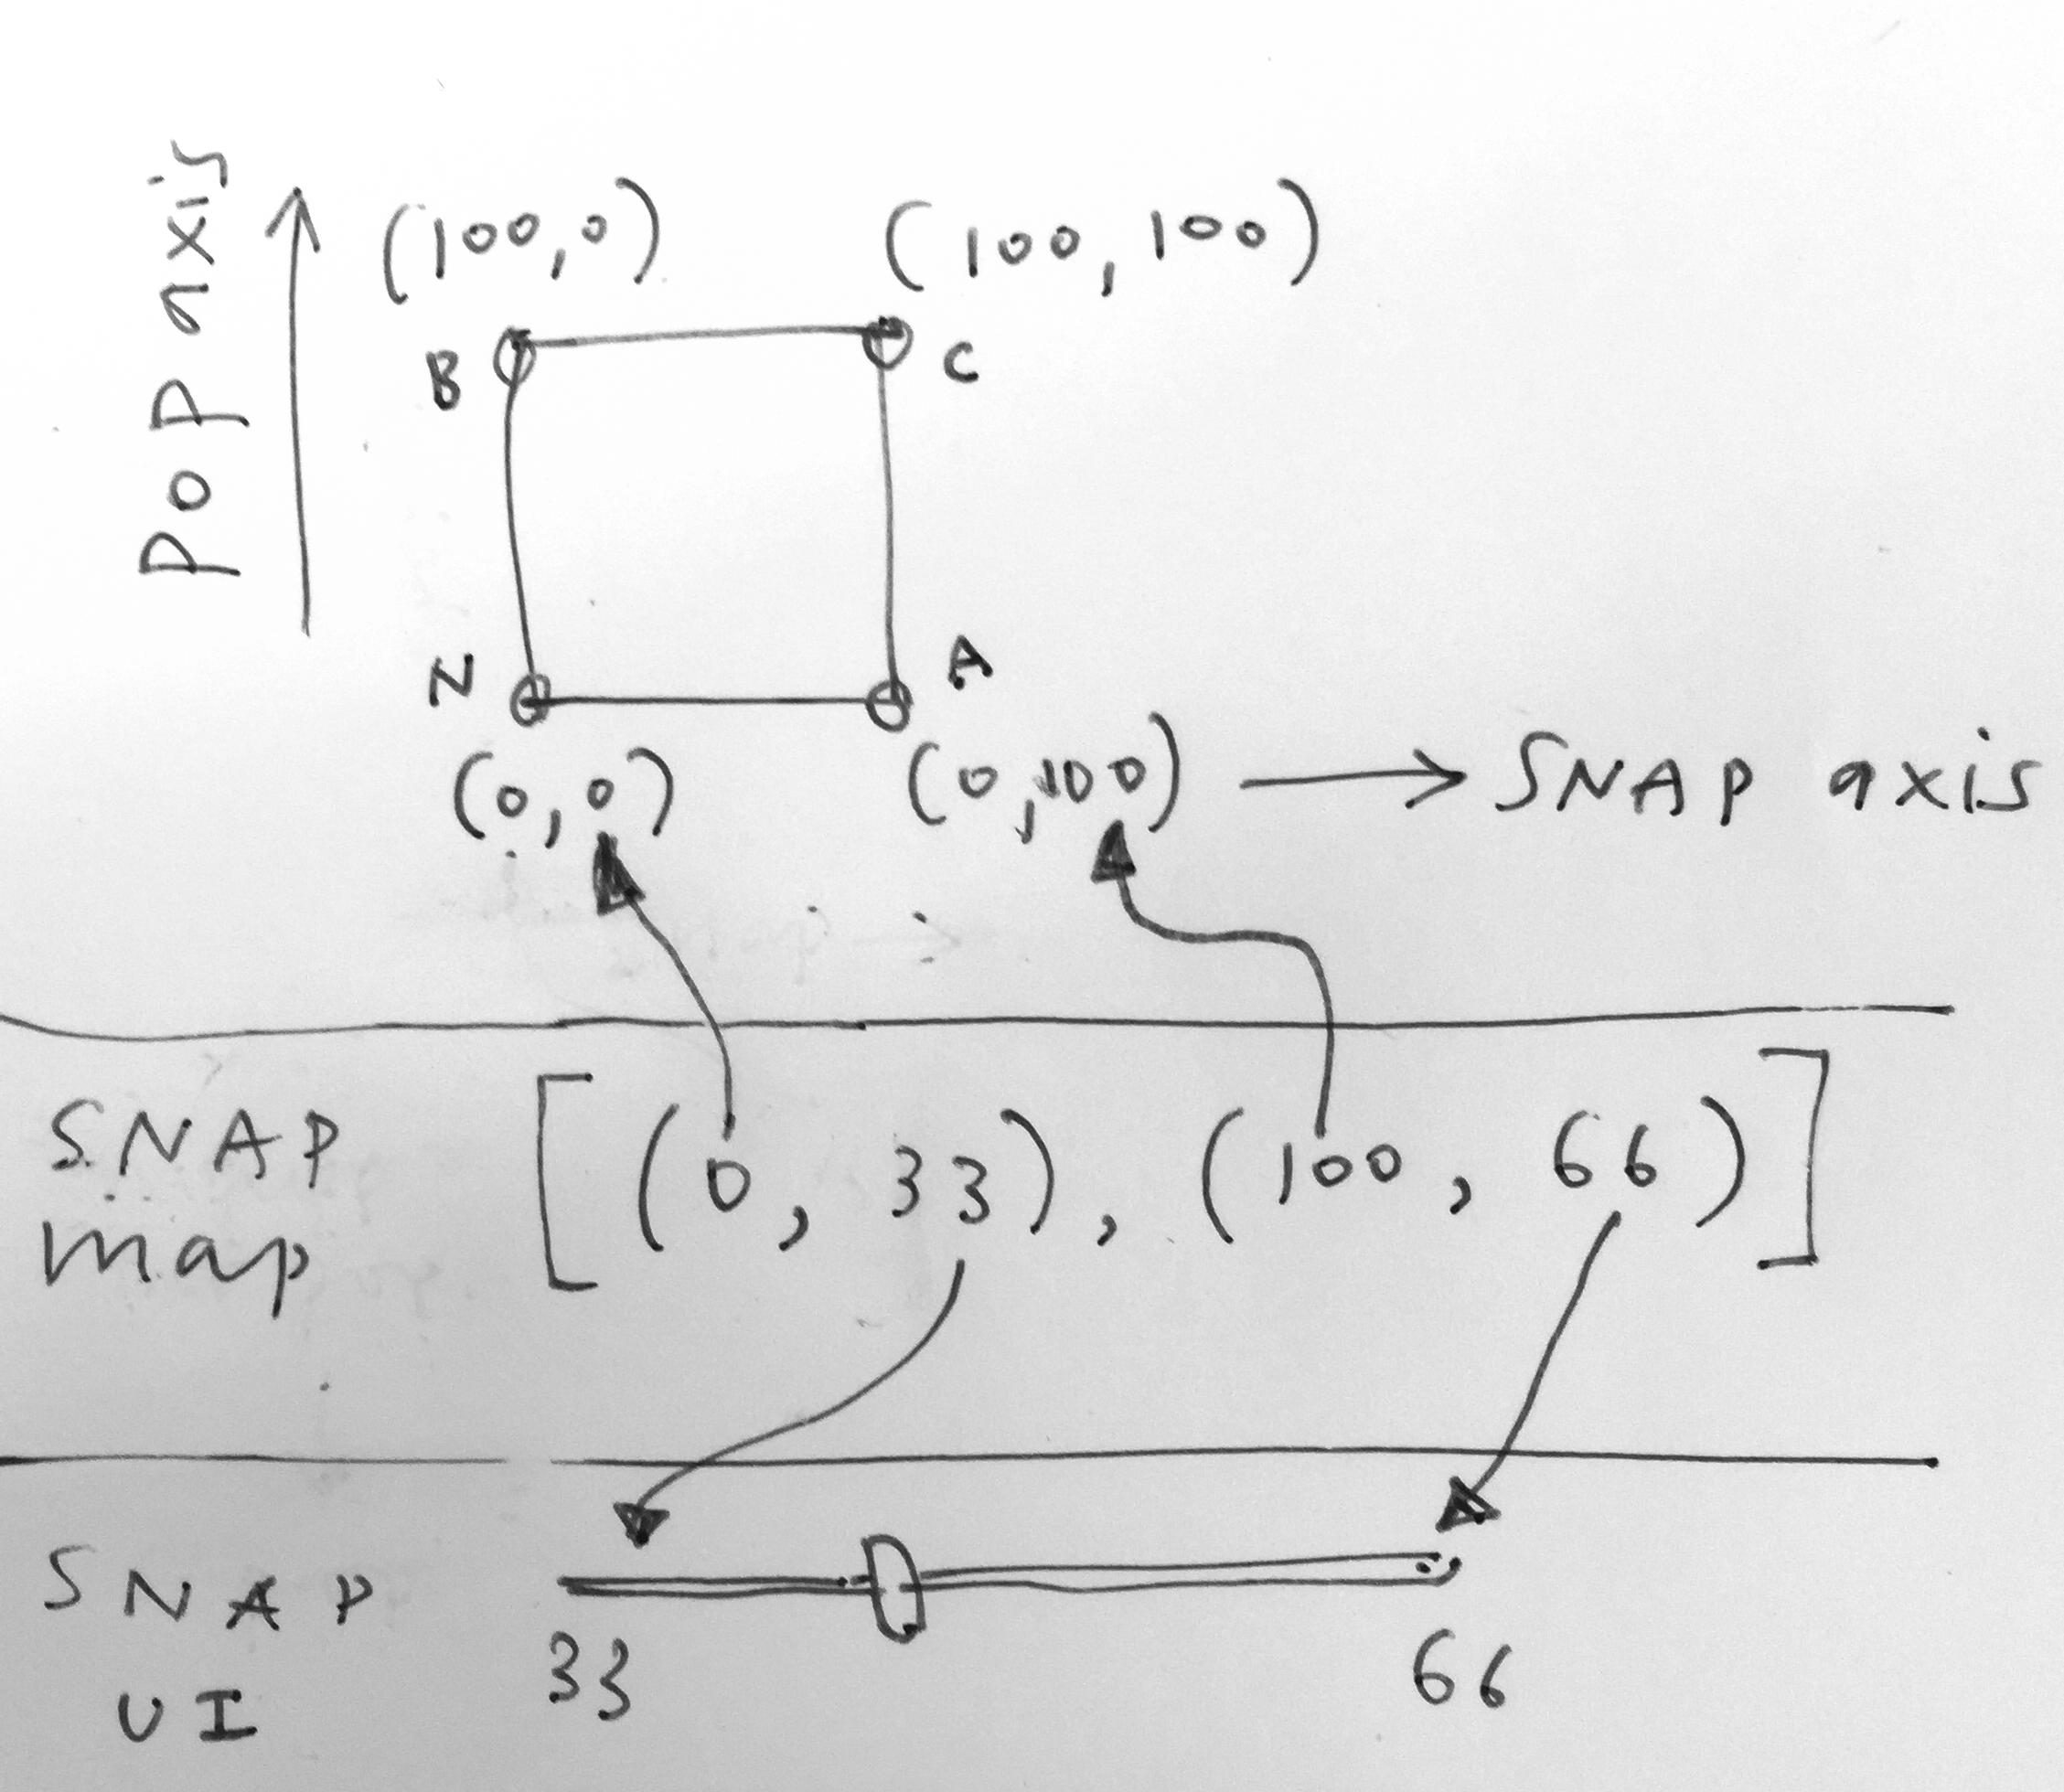 pop axis
(100,0) (100,100)
B C
N A
(0,0) (0,100) → SNAP axis
SNAP [(0, 33), (100, 66)]
map
SNAP
33 66
UI